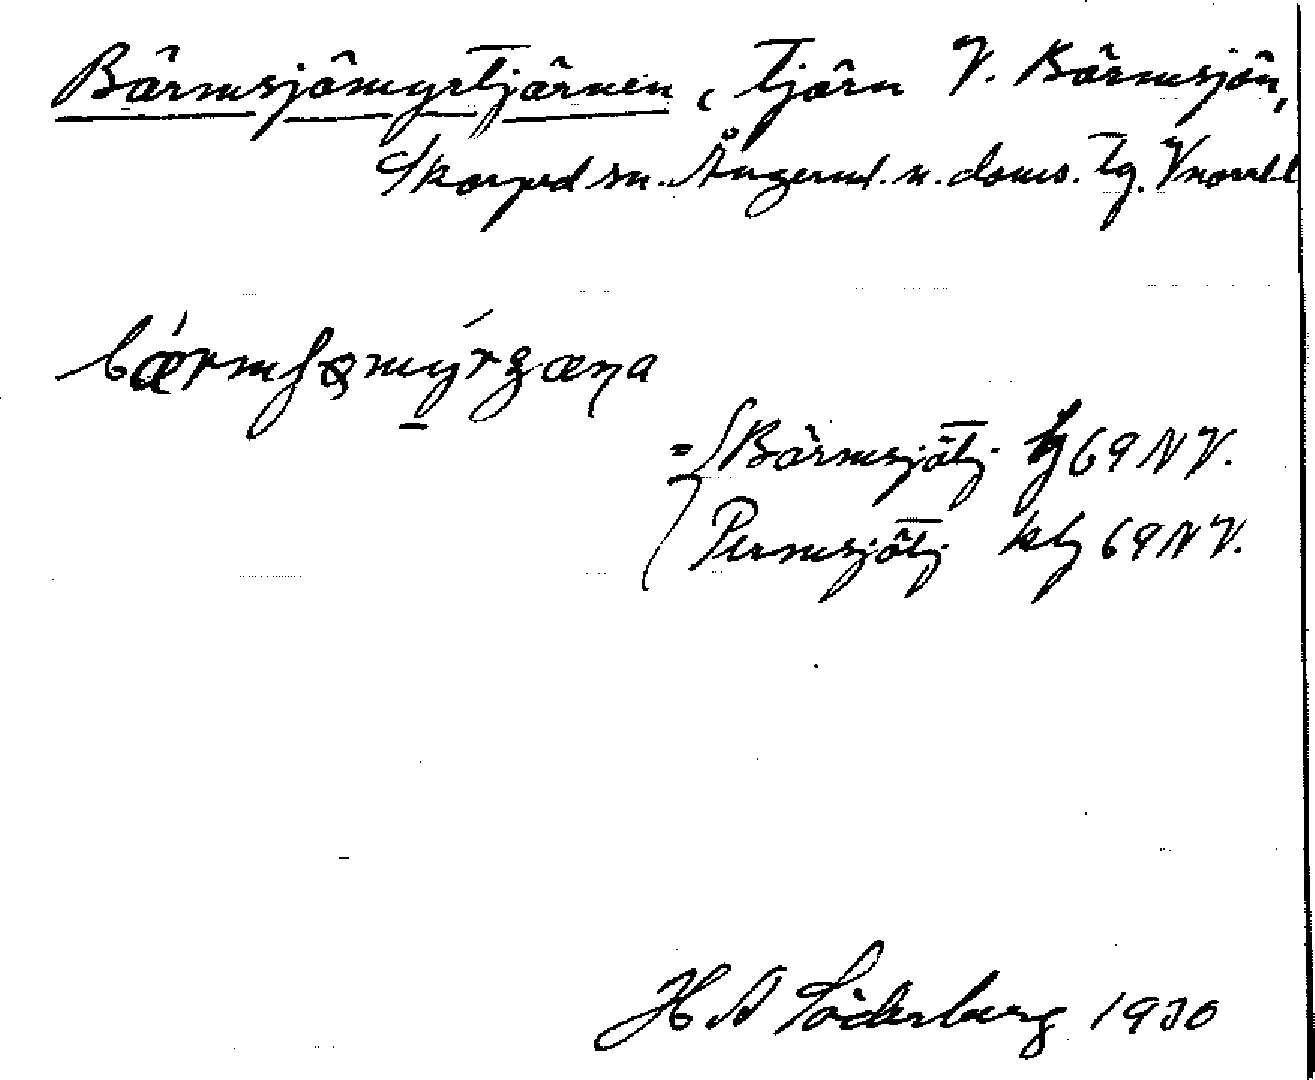 Bärmsjömyrtjärnen, tjärn V. Bärmsjön,
Skorped sn. Ångerml. n. doms. tg. Vnorrl. l
= Bärmsjötj. tg 69 NV.
Permsjötj. ktg 69 NV.
H A Söderberg 1930